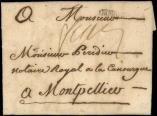 A Monsieur
Monsieur
notaire Royal a la Canourgue
a Montpellier